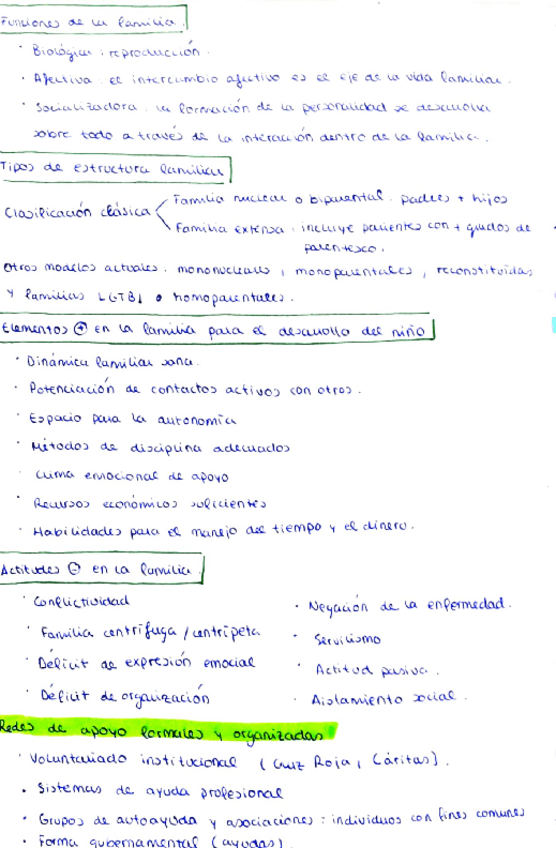 Funciones de la familia.
· Biológica: reproducción.
· Afectiva: el intercambio afectivo es el eje de la vida familiar.
· Socializadora: la formación de la personalidad se desarrolla
sobre todo a través de la interacción dentro de la familia.
Tipos de estructura familiar
Clasificación clásica
Familia nuclear o biparental: padres + hijos
Familia extensa: incluye parientes con + grados de
parentesco.
Otros modelos actuales: mononucleales, monoparentales, reconstituidas
y familias LGTBI o homoparentales.
Elementos ⊕ en la familia para el desarrollo del niño
· Dinámica familiar sana.
· Potenciación de contactos activos con otros.
· Espacio para la autonomía
· Métodos de disciplina adecuados
· Clima emocional de apoyo
· Recursos económicos suficientes
· Habilidades para el manejo del tiempo y el dinero.
Actitudes ⊖ en la familia.
· Conflictividad
· Familia centrífuga / centrípeta
· Déficit de expresión emocial
· Déficit de organización
· Negación de la enfermedad.
· Servilismo
· Actitud pasiva.
· Aislamiento social.
Redes de apoyo formales y organizadas
· Voluntariado institucional (Cruz Roja, Cáritas).
· Sistemas de ayuda profesional
· Grupos de autoayuda y asociaciones: individuos con fines comunes
· Forma gubernamental (ayudas)